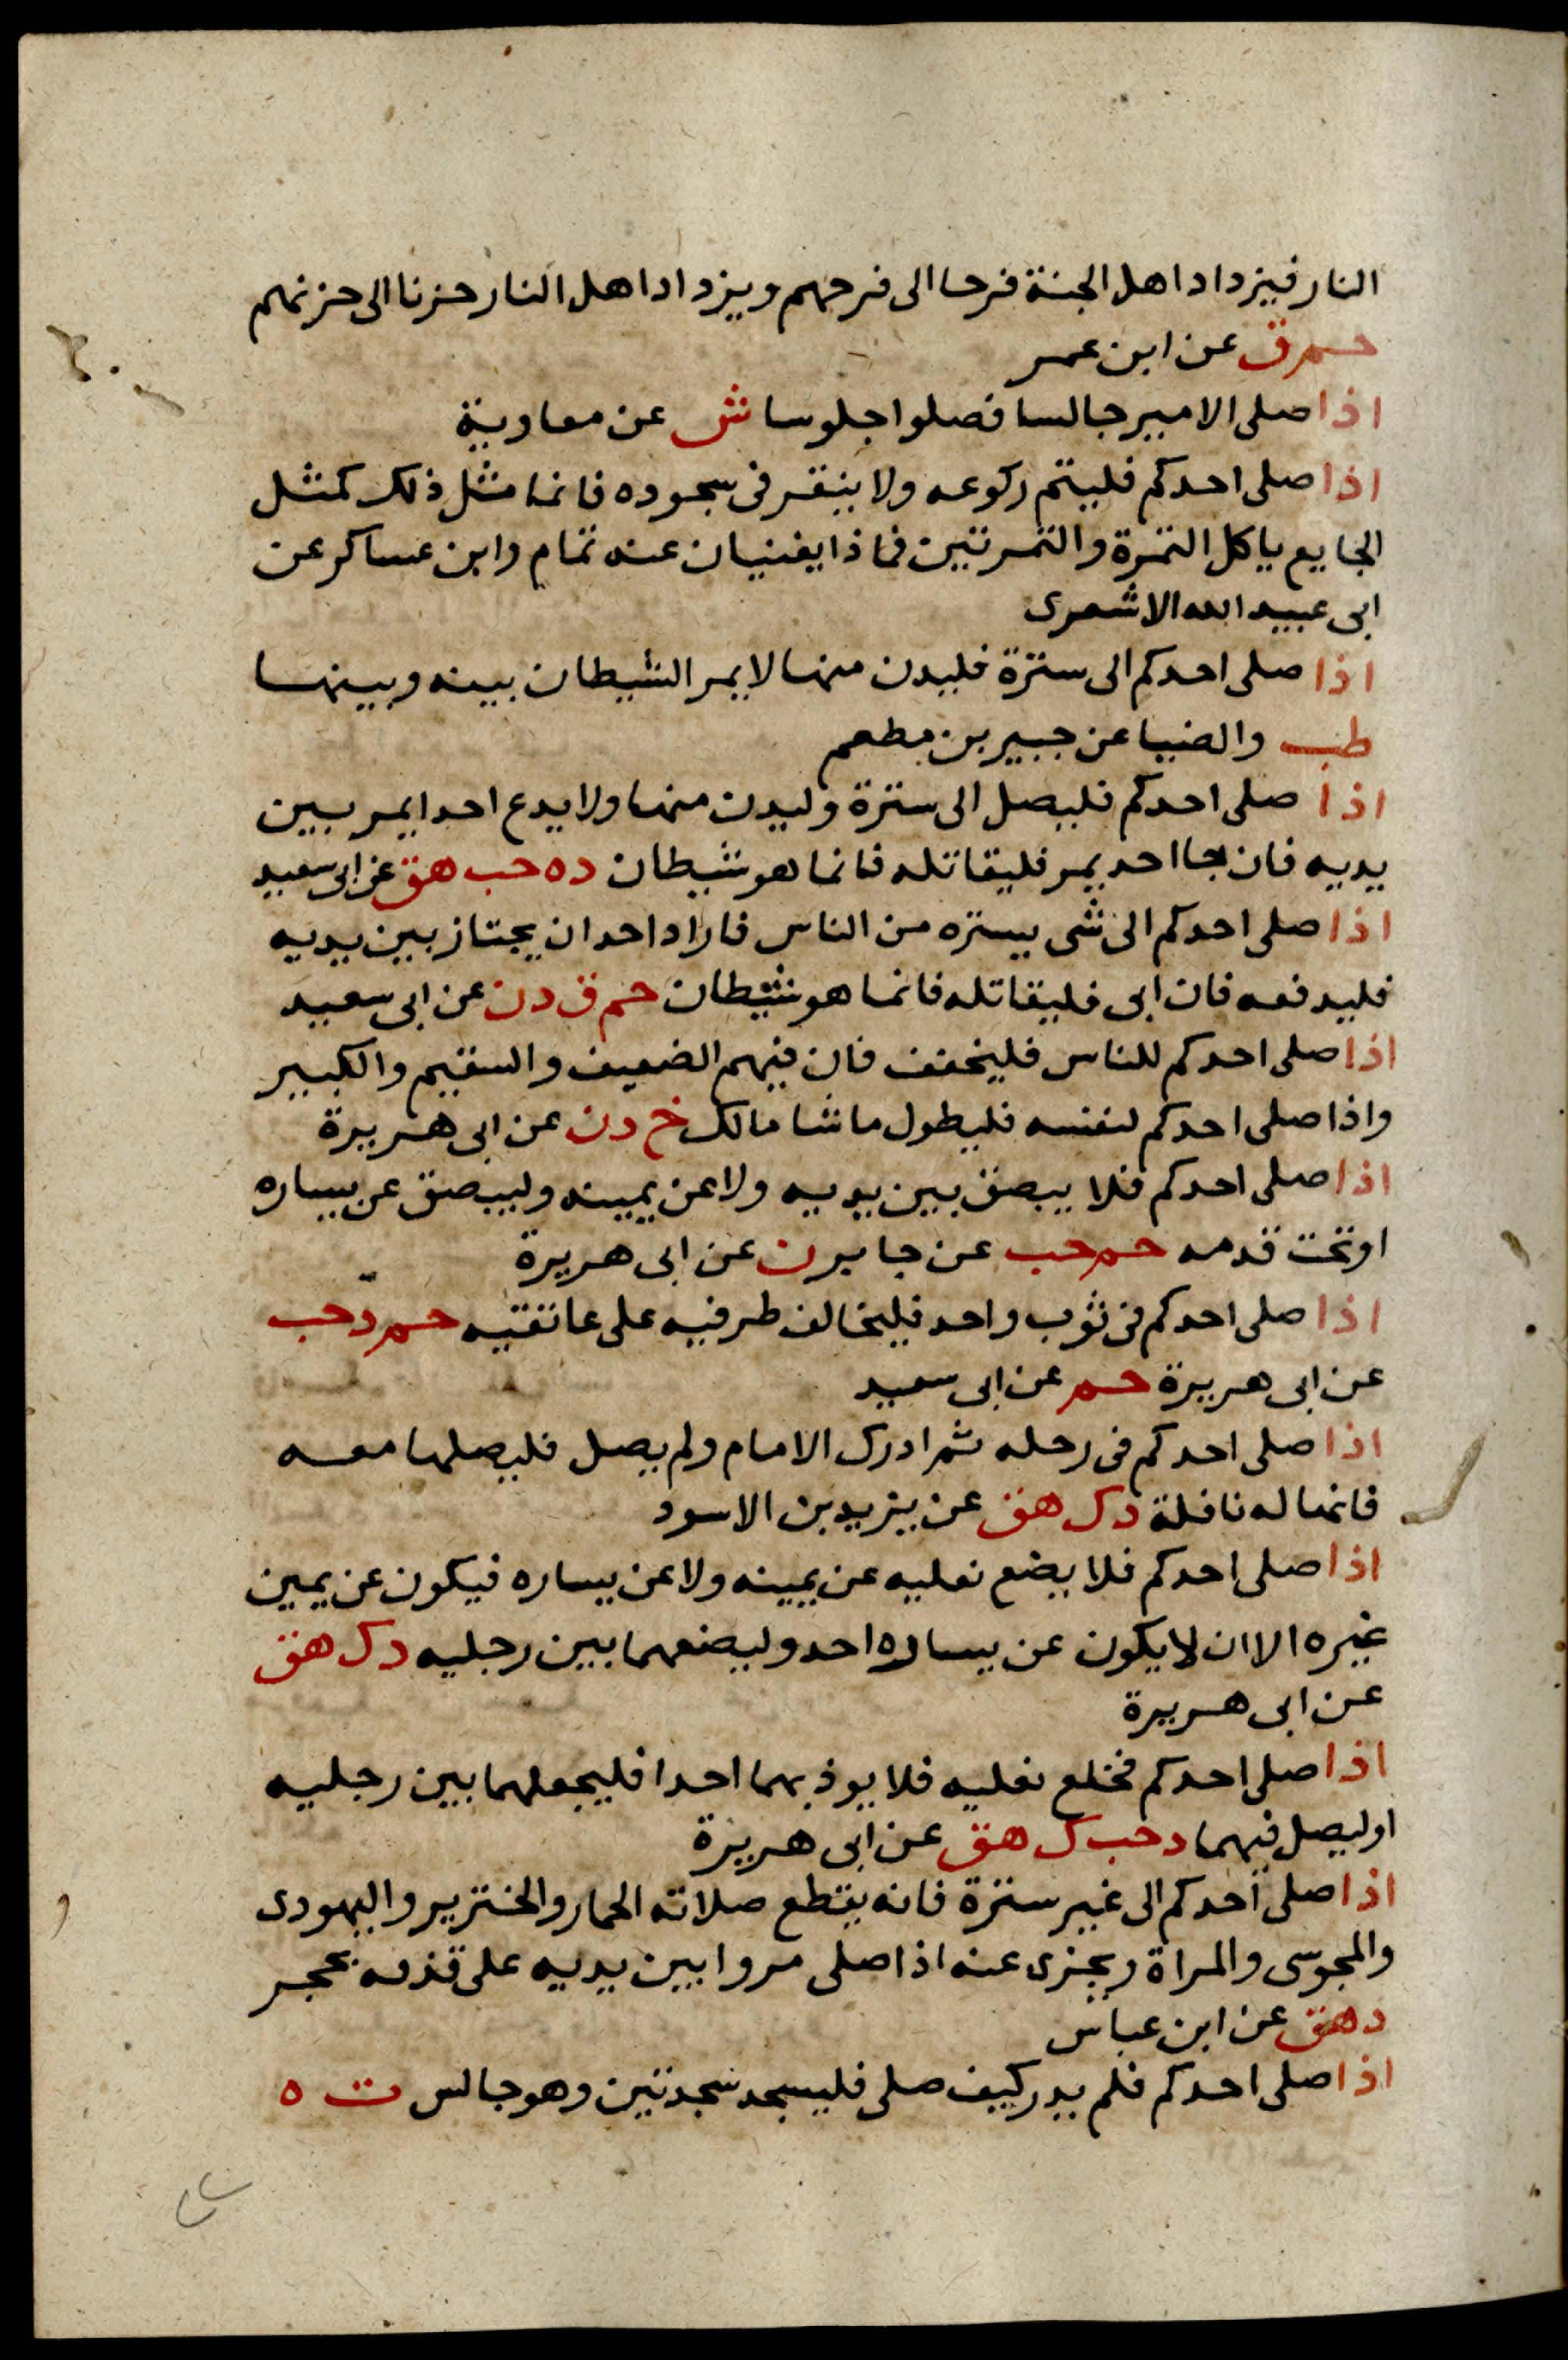 النار فيزداد اهل الجنة فرحا الى فرحهم ويزداد اهل النار حزنا الى حزنهم
حم ق عن ابن عمر
اذا صلى الامير جالسا فصلوا جلوسا ش عن معاوية
اذا صلى احدكم فليتم ركوعه ولا ينقر فى سجوده فانما مثل ذلك كمثل
الجايع ياكل التمرة والتمرتين فماذا يغنيان عنه تمام وابن عساكر عن
ابى عبيد الله الاشعرى
اذا صلى احدكم الى سترة فليدن منها لا يمر الشيطان بينه وبينها
طب والضيا عن جبير بن مطعم
اذا صلى احدكم فليصل الى سترة وليدن منها ولا يدع احدا يمر بين
يديه فان جا احد يمر فليقاتله فانما هو شيطان د ه حب هق عن ابى سعيد
اذا صلى احدكم الى شى يستره من الناس فاراد احد ان يجتاز بين يديه
فليدفعه فان ابى فليقاتله فانما هو شيطان حم ق د ن عن ابى سعيد
اذا صلى احدكم للناس فليخفف فان فيهم الضعيف والسقيم والكبير
واذا صلى احدكم لنفسه فليطول ما شا مالك خ د ن عن ابى هريرة
اذا صلى احدكم فلا يبصق بين يديه ولا عن يمينه وليبصق عن يساره
او تحت قدمه حم حب عن جابر ن عن ابى هريرة
اذا صلى احدكم فى ثوب واحد فليخالف طرفيه على عاتقيه حم د حب
عن ابى هريرة حم عن ابى سعيد
اذا صلى احدكم فى رحله ثم ادرك الامام ولم يصل فليصلها معه
فانها له نافلة د ك هق عن يزيد بن الاسود
اذا صلى احدكم فلا يضع نعليه عن يمينه ولا عن يساره فيكون عن يمين
غيره الا ان لا يكون عن يساره احد وليضعهما بين رجليه د ك هق
عن ابى هريرة
اذا صلى احدكم فخلع نعليه فلا يوذ بهما احدا فليجعلهما بين رجليه
او ليصل فيهما د حب ك هق عن ابى هريرة
اذا صلى احدكم الى غير سترة فانه يقطع صلاته الحمار والخنزير واليهودى
والمجوسى والمراة ويجزى عنه اذا صلى مروا بين يديه على قذفه بحجر
د هق عن ابن عباس
اذا صلى احدكم فلم يدر كيف صلى فليسجد سجدتين وهو جالس ت ه